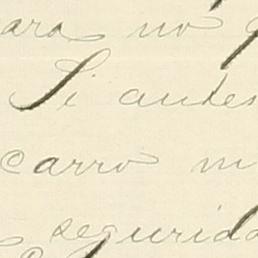 ara no
Si andes
carro m
segurida